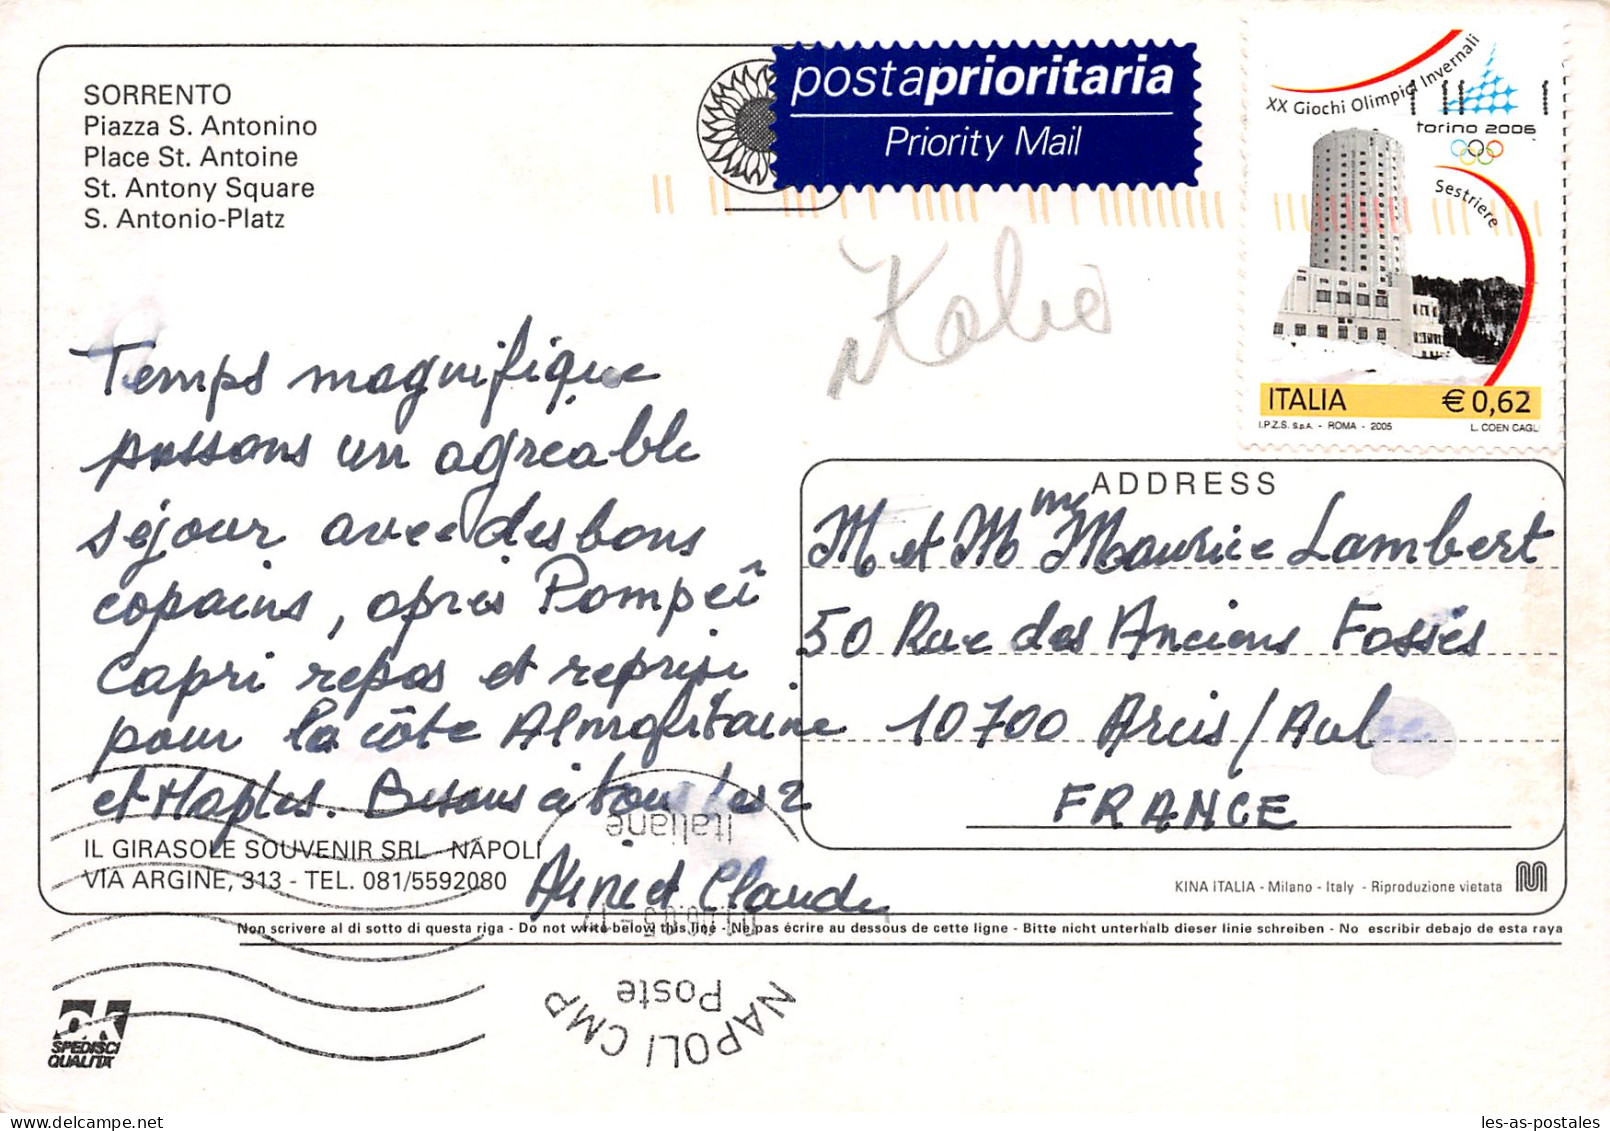 SORRENTO
Piazza S. Antonino
Place St. Antoine
St. Antony Square
S. Antonio-Platz
postaprioritaria
Priority Mail
XX Giochi Olimpici Invernali
torino 2006
Sestriere
ITALIA € 0,62
I.P.Z.S. S.p.A. - ROMA - 2005 L. COEN CAGLI
Italie
Temps magnifique
passons un agréable
séjour avec des bons
copains, après Pompeï
Capri repos et reprise
pour la côte Almafitaine
et Naples. Bisous à tous les 2
Aline et Claude
ADDRESS
M et Mme Maurice Lambert
50 Rue des Anciens Fossés
10700 Arcis/Aube
FRANCE
IL GIRASOLE SOUVENIR SRL - NAPOLI
VIA ARGINE, 313 - TEL. 081/5592080
KINA ITALIA - Milano - Italy - Riproduzione vietata
Non scrivere al di sotto di questa riga - Do not write below this line - Ne pas écrire au dessous de cette ligne - Bitte nicht unterhalb dieser linie schreiben - No escribir debajo de esta raya
Poste
Italiane
NAPOLI CMP
OK
SPEDISCI
QUALITA'
les-as-postales